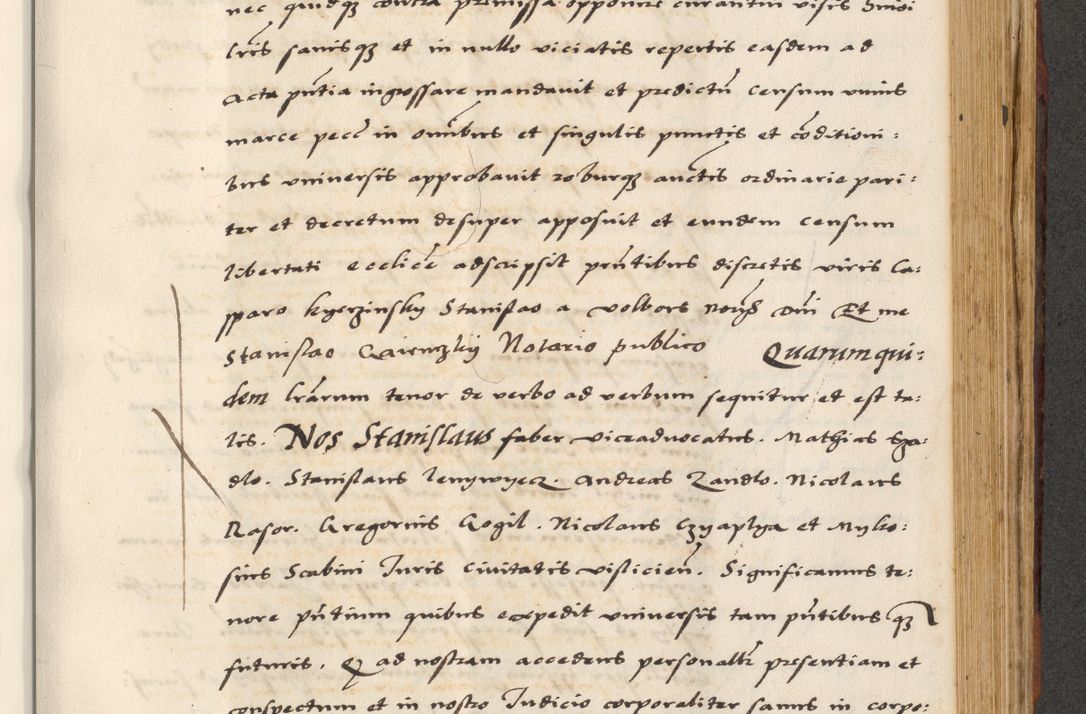 nec quidq3 contra premissa opponere curantin visis hmōi
lrīs sanisq3 et in nullo viciatis repertis easdem ad
acta pn̄tia ingrossare mandavit et predictū censum vnius
marce pecc̄ in omībus et singulis punctis et cōditioni:
bus vniversis approbavit roburq3 auctīs ordinarie pari:
ter et decretum desuper apposuit et eundem censum
libertati ecclicē adscripsit prn̄tibus discretis viris Ca:
sparo kyerzinsky Stanislao a volbors Dnī Et me
Stanislao Notario publico Quarum qui:
dem lrārum tenor de verbo ad verbum sequitur et est ta:
lis. Nos Stanislaus faber viceadvocatus. Mathias Sza:
dlo. Stanislaus lenywyecz. Andreas Zandlo. Nicolaus
Rasor. Gregorius Gogil. Nicolaus Czyaplya et Myko:
sius Scabini Juris Civitatis visliciēn. Significamus te:
nore pn̄tium quibus expedit vniversis tam pn̄tibus q3
futuris. Q ad nostram accedens personalt̄r presentiam et
conspectum et in nostro Judicio corporaliter sanus in corpo: